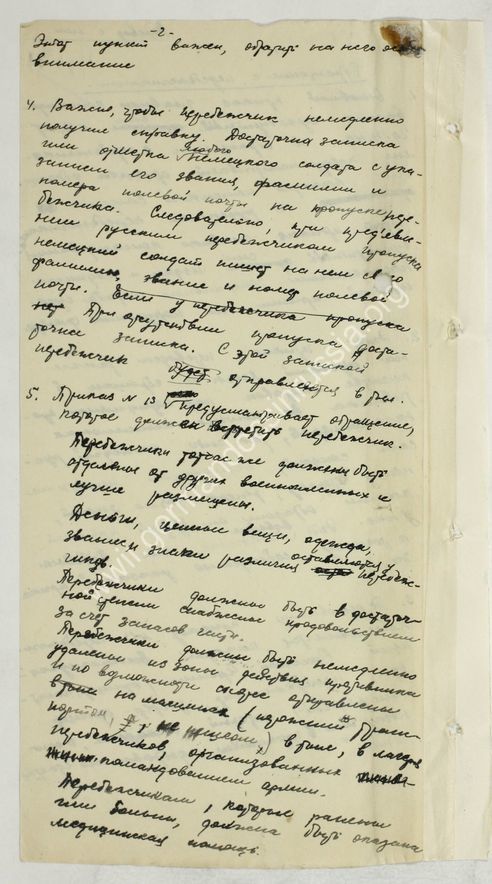 -2-
Этот пункт важен, обратить на него особое
внимание
4. Важно, чтобы перебежчик немедленно
получил справку. Достаточна записка
или отметка любого немецкого солдата с ука-
занием его звания, фамилии и
номера полевой почты на пропуске пере-
бежчика. Следовательно, при предъявле-
нии русским перебежчиком пропуска
немецкий солдат пишет на нем свою
фамилию, звание и номер полевой
почты. Если у перебежчика пропуска
нет При отсутствии пропуска доста-
точна записка. С этой запиской
перебежчик будет отправляется в тыл.
5. Приказ N 13 предусматривает обращение,
которое должен встретить перебежчик.
Перебежчики тотчас же должны быть
отделены от других военнопленных и
лучше размещены.
Деньги, ценные вещи, одежда,
звание и знаки различия оставляются у перебеж-
чиков.
Перебежчики должны быть в достаточ-
ной степени снабжены продовольствием
за счет запасов части.
Перебежчики должны быть немедленно
удалены из зоны действия противника
и по возможности скорее отправлены
в тыл на машинах (порожний транс-
портом, не пешком) в тыл, в лагеря
перебежчиков, организованных
командованием армии.
Перебежчикам, которые ранены
или больны, должна быть оказана
медицинская помощь.
www.germandocsinrussia.org